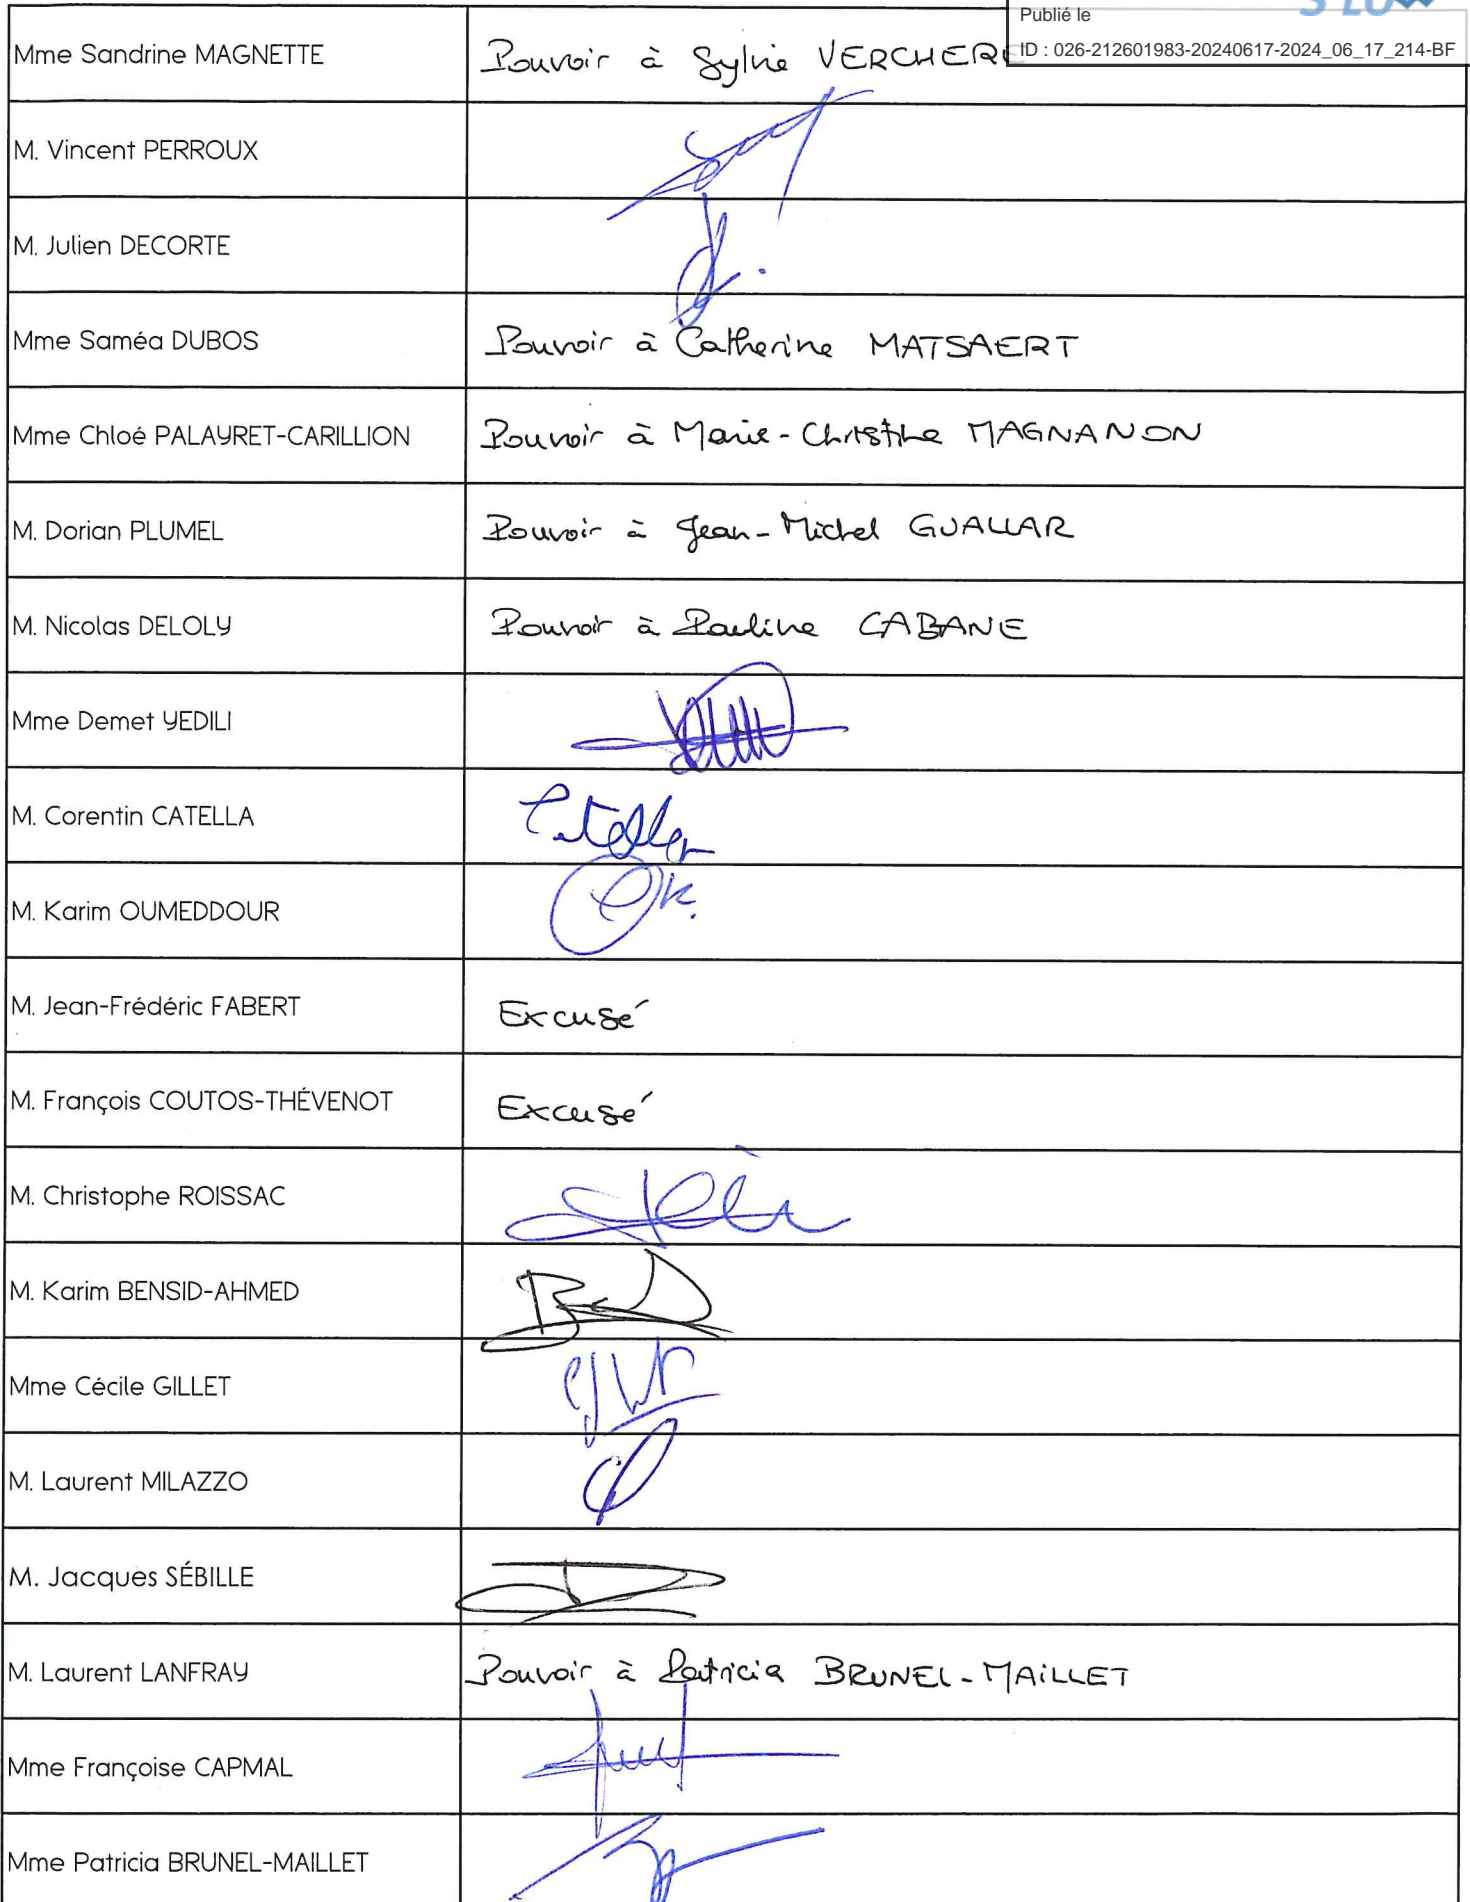 Publié le
ID : 026-212601983-20240617-2024_06_17_214-BF
Mme Sandrine MAGNETTE Pouvoir à Sylvie VERCHERE
M. Vincent PERROUX
M. Julien DECORTE
Mme Saméa DUBOS Pouvoir à Catherine MATSAERT
Mme Chloé PALAYRET-CARILLION Pouvoir à Marie-Christine MAGNANON
M. Dorian PLUMEL Pouvoir à Jean-Michel GUALLAR
M. Nicolas DELOLY Pouvoir à Pauline CABANE
Mme Demet YEDILI
M. Corentin CATELLA Catella
M. Karim OUMEDDOUR OK.
M. Jean-Frédéric FABERT Excusé
M. François COUTOS-THÉVENOT Excusé
M. Christophe ROISSAC
M. Karim BENSID-AHMED
Mme Cécile GILLET
M. Laurent MILAZZO
M. Jacques SÉBILLE
M. Laurent LANFRAY Pouvoir à Patricia BRUNEL-MAILLET
Mme Françoise CAPMAL
Mme Patricia BRUNEL-MAILLET